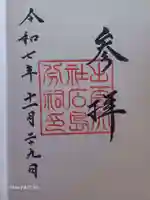 参拝
出雲大
社石島
分祠印
令和七年十一月二十九日